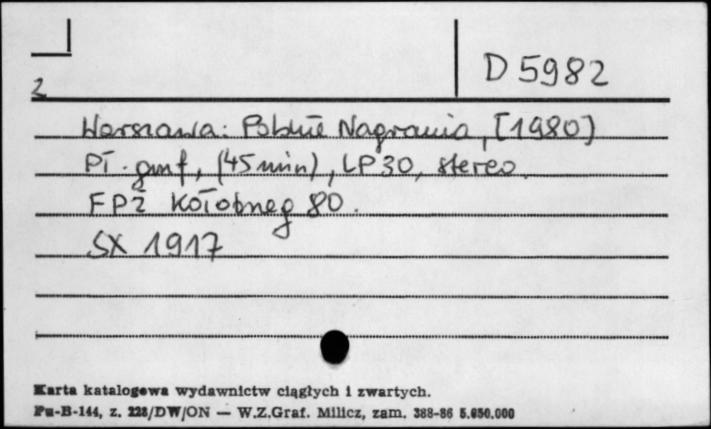 D 5982
2
Warszawa: Polskie Nagrania, [1980]
Pł. gmf, (45 min), LP 30, stereo.
FPŻ Kołobrzeg 80.
SX 1917
Karta katalogowa wydawnictw ciągłych i zwartych.
Pu-B-144, z. 228/DW/ON — W.Z.Graf. Milicz, zam. 388-86 5.650.000